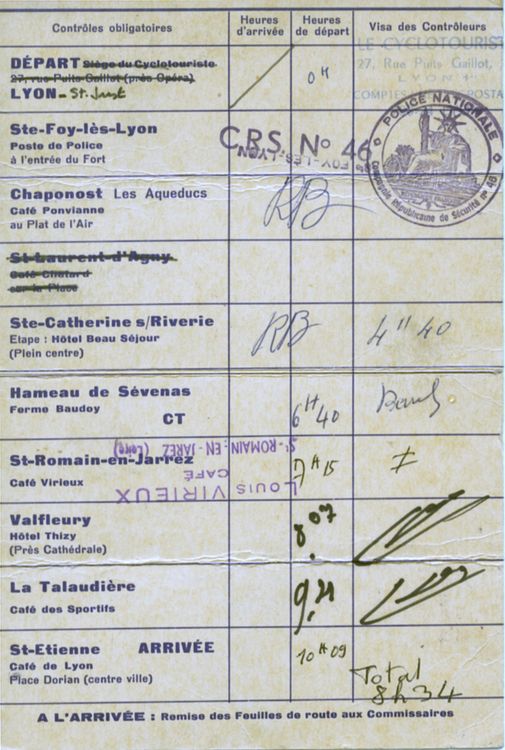 Contrôles obligatoires
Heures d'arrivée
Heures de départ
Visa des Contrôleurs
DÉPART Siège du Cyclotouriste
27, rue Puits Gaillot (près Opéra)
LYON - St. Just
0H
LE CYCLOTOURIST
27, Rue Puits Gaillot,
LYON 1er
Ste-Foy-lès-Lyon
Poste de Police
à l'entrée du Fort
C.R.S. No 46
FOY-LÈS-LYON
POLICE NATIONALE
Compagnie Républicaine de Sécurité n° 46
Chaponost Les Aqueducs
Café Ponvianne
au Plat de l'Air
RB
St-Laurent-d'Agny
Café Chatard
sur la Place
Ste-Catherine s/Riverie
Etape : Hôtel Beau Séjour
(Plein centre)
RB
4H 40
Hameau de Sévenas
Ferme Baudoy
CT
6H 40
St-Romain-en-Jarrez
Café Virieux
St-ROMAIN-EN-JAREZ (Loire)
CAFÉ
LOUIS VIRIEUX
7H 15
I
Valfleury
Hôtel Thizy
(Près Cathédrale)
8.07
La Talaudière
Café des Sportifs
9,21
St-Etienne ARRIVÉE
Café de Lyon
Place Dorian (centre ville)
10H09
Total
8h34
A L'ARRIVÉE : Remise des Feuilles de route aux Commissaires